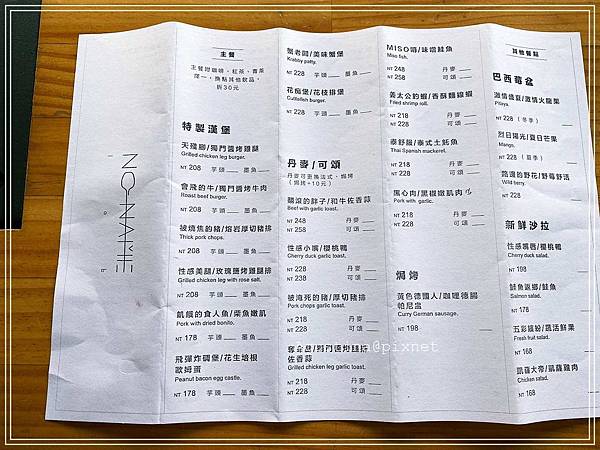 NO·NAME
主餐
主餐附咖啡、紅茶、青茶
擇一，換點其他飲品，
折30元
特製漢堡
天殘腳/獨門醬烤雞腿
Grilled chicken leg burger.
NT 208 芋頭 墨魚
會飛的牛/獨門醬烤牛肉
Roast beef burger.
NT 208 芋頭 墨魚
被燒焦的豬/熔岩厚切豬排
Thick pork chops.
NT 208 芋頭 墨魚
性感美腿/玫瑰鹽烤雞腿排
Grilled chicken leg with rose salt.
NT 208 芋頭 墨魚
飢餓的食人魚/柴魚嫩肌
Pork with dried bonito.
NT 178 芋頭 墨魚
飛彈炸碉堡/花生培根
歐姆蛋
Peanut bacon egg castle.
NT 178 芋頭 墨魚
蟹老闆/美味蟹堡
Krabby patty.
NT 228 芋頭 墨魚
花痴堡/花枝排堡
Cuttlefish burger.
NT 228 芋頭 墨魚
丹麥/可頌
丹麥可更換法式、焗烤
(焗烤+10元)
飄浪的胖子/和牛佐香蒜
Beef with garlic toast.
NT 248 丹麥
NT 258 可頌
性感小嘴/櫻桃鴨
Cherry duck garlic toast.
NT 228 丹麥
NT 238 可頌
被淹死的豬/厚切豬排
Pork chops garlic toast.
NT 218 丹麥
NT 228 可頌
奪命腿/獨門醬烤雞排
佐香蒜
Grilled chicken leg garlic toast.
NT 218 丹麥
NT 228 可頌
MISO唷/味噌鮭魚
Miso fish.
NT 248 丹麥
NT 258 可頌
姜太公釣蝦/香酥麵線蝦
Filed shrimp roll.
NT 218 丹麥
NT 228 可頌
泰舒服/泰式土魠魚
Thai Spanish mackerel.
NT 218 丹麥
NT 228 可頌
黑心肉/黑椒嫩肌肉
Pork with garlic.
NT 218 丹麥
NT 228 可頌
焗烤
黃色德國人/咖哩德腸
帕尼尼
Curry German sausage.
NT 198
其他餐點
巴西莓盆
激情盛夏/激情火龍果
Pitaya.
NT 228 (冬季)
烈日陽光/夏日芒果
Mango.
NT 228 (夏季)
路邊的野花/野莓野活
Wild berry.
NT 228
新鮮沙拉
性感嘴唇/櫻桃鴨
Cherry duck salad.
NT 198
鮭魚返鄉/鮭魚
Salmon salad.
NT 178
五彩繽紛/蔬活鮮果
Fresh fruit salad.
NT 168
凱薩大帝/凱薩雞肉
Chicken salad.
NT 168
@pixnet